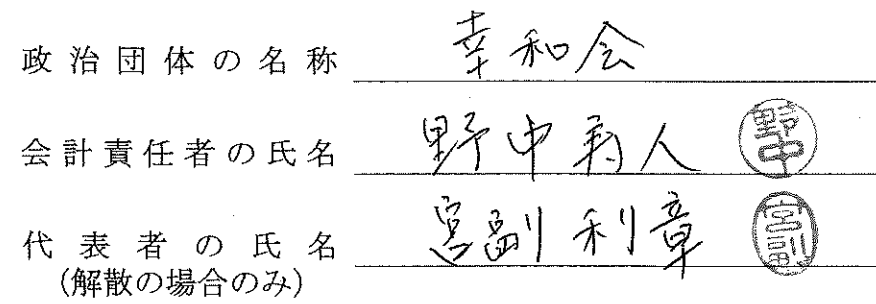 政治団体の名称 幸和会
会計責任者の氏名 野中寿人 野中
代表者の氏名 宮副利章 宮副
(解散の場合のみ)